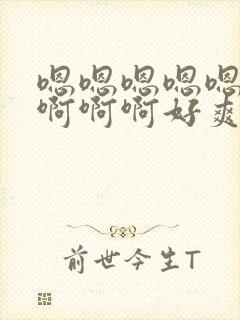 嗯嗯嗯嗯嗯
啊啊啊好爽
前世今生T